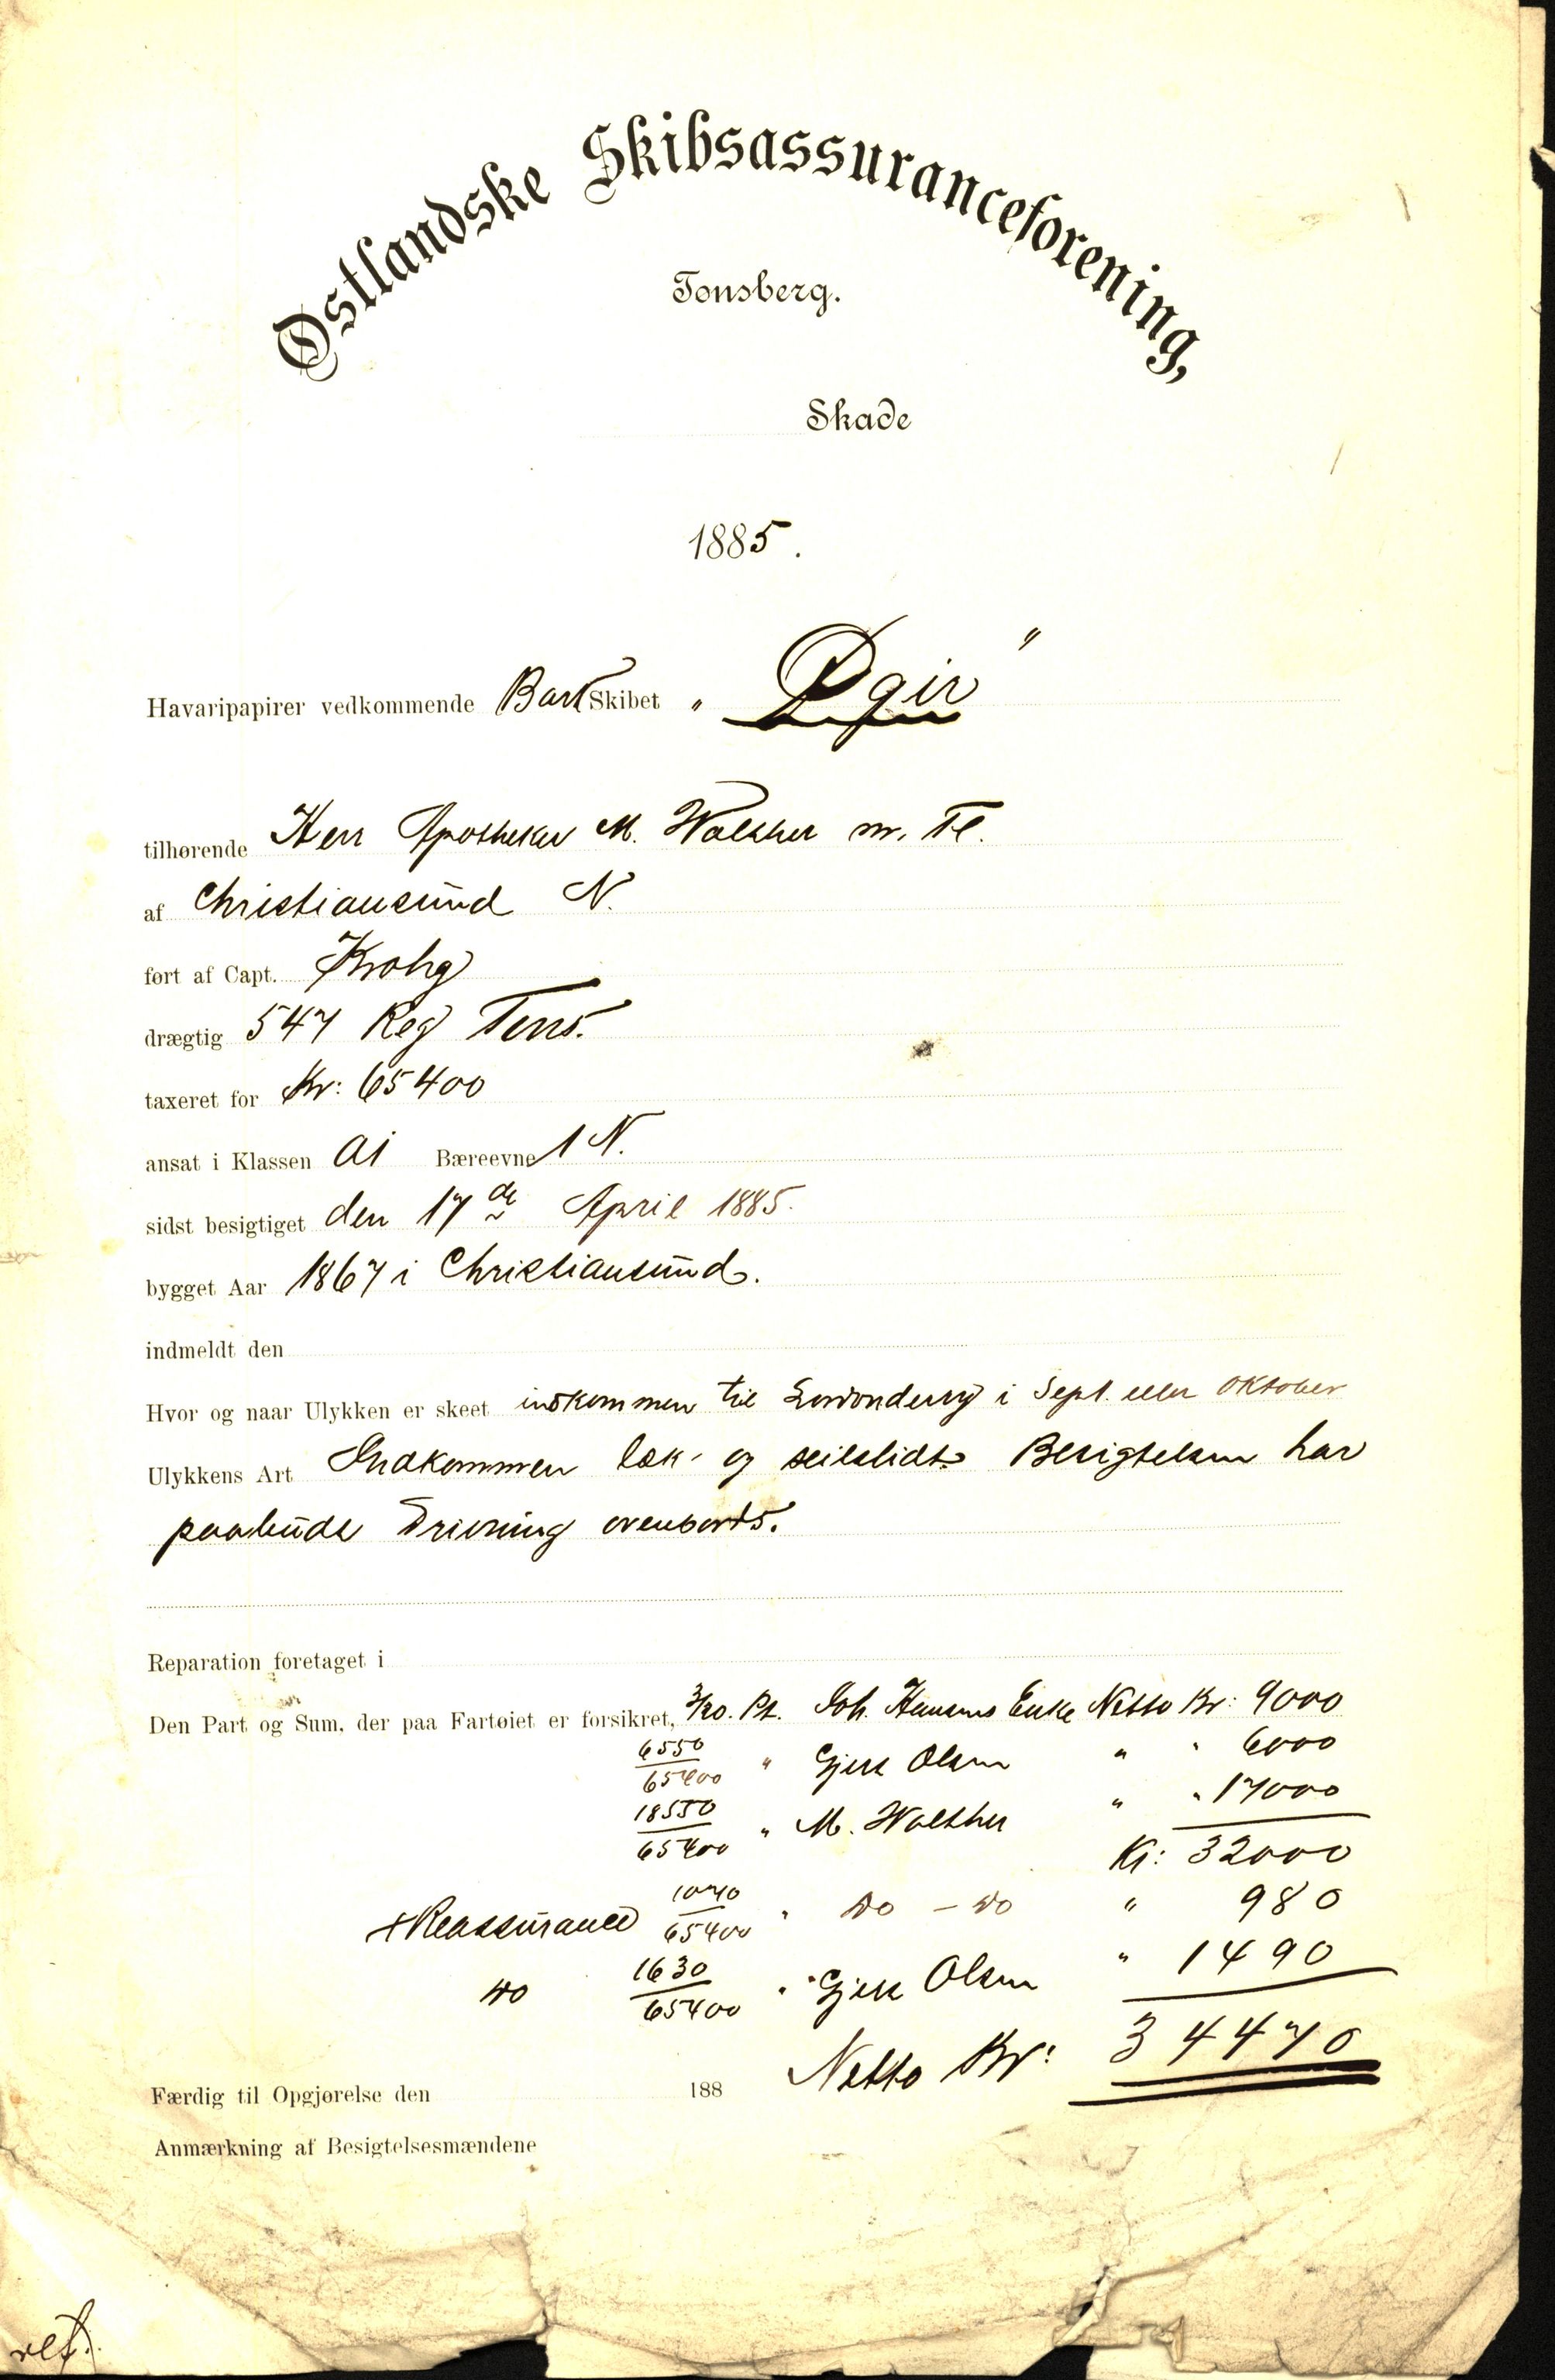 Østlandske Skibsassuranceforening,
Tønsberg.
Skade
1885.
Havaripapirer vedkommende Bark Skibet "Ægir"
tilhørende Herr Apotheker M. Walther m. Fl.
af Christiansund N.
ført af Capt. Krohg
drægtig 547 Reg Tons.
taxeret for Kr: 65400
ansat i Klassen A1 Bæreevne 1 N.
sidst besigtiget den 17de April 1885.
bygget Aar 1867 i Christiansund.
indmeldt den
Hvor og naar Ulykken er skeet indkommen til Londonderry i Sept. eller Oktober
Ulykkens Art Indkommen læk- og seilslidt. Besigtelsen har
paabudt Drivning ovenbords.
Reparation foretaget i
Den Part og Sum, der paa Fartøiet er forsikret, 3/20. Pt. Joh. Hansens Enke Netto Kr: 9000
6550/65400 " Gjert Olsen " " 6000
18550/65400 " M. Walther " " 17000
Kr: 32000
+ Reassurance 1070/65400 " do - do " 980
do 1630/65400 " Gjert Olsen " 1490
Netto Kr: 34470
Færdig til Opgjørelse den 188
Anmærkning af Besigtelsesmændene